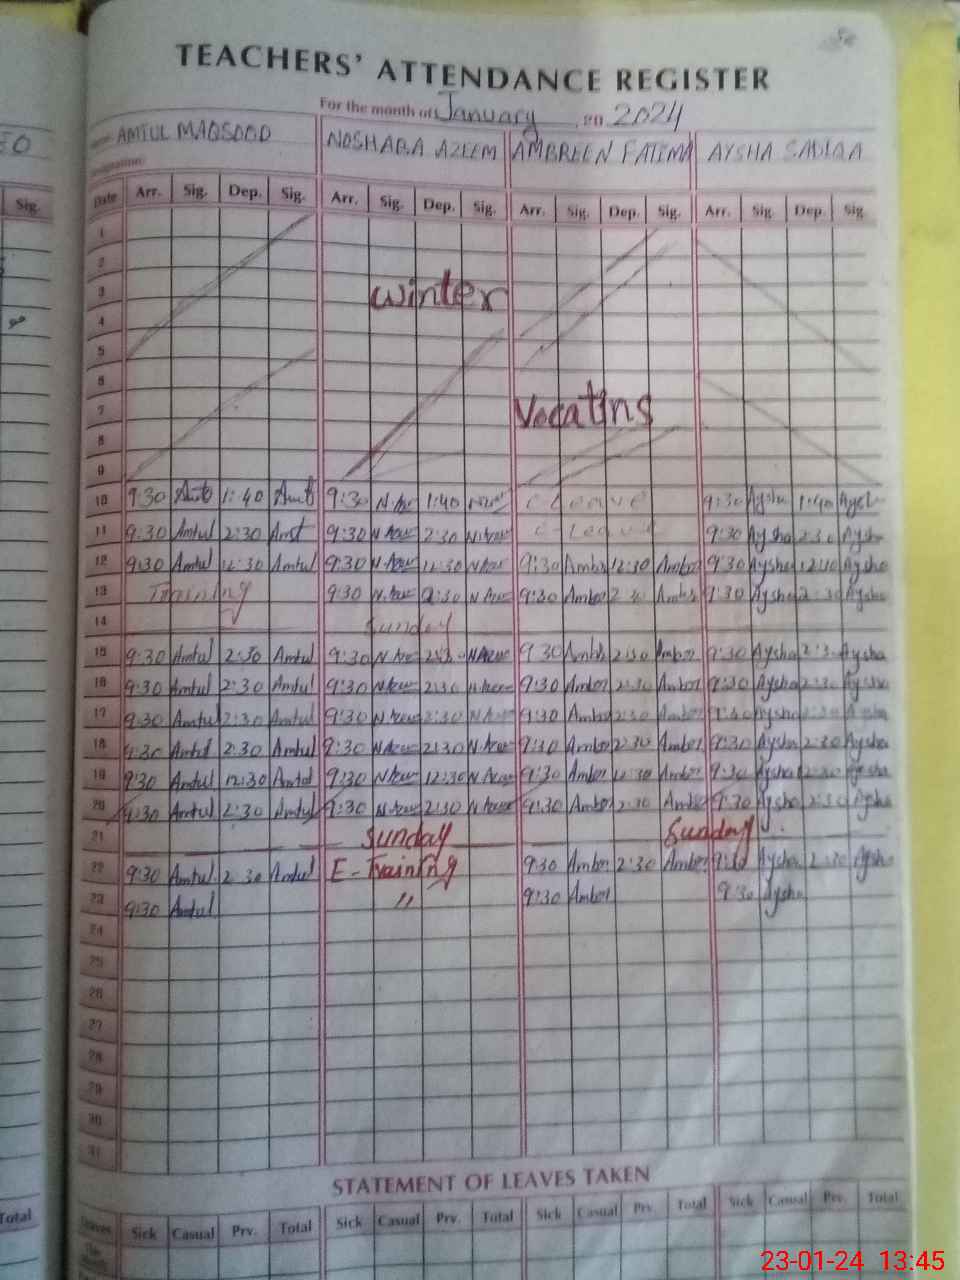 TEACHERS' ATTENDANCE REGISTER
For the month of January, 20 2024
EO
AMTUL MAQSOOD NOSHABA AZEEM AMBREEN FATIMA AYSHA SADIAA
Sig.
Date Arr. Sig. Dep. Sig. Arr. Sig. Dep. Sig. Arr. Sig. Dep. Sig. Arr. Sig. Dep. Sig.
1
2
3 Winter
4
5
6
7 Vocatins
8
9
10 9:30 Amt 1:40 Amt 9:30 N.Aze 1:40 C Leave 9:30 Aysha 1:40 Aysh
11 9:30 Amtul 2:30 Amt 9:30 N Aze 2:30 N.Aze C-Leave 9:30 Aysha 2:30 Aysha
12 9:30 Amtul 12:30 Amtul 9:30 N.Aze 12:30 N Aze 9:30 Amber 12:30 Amber 9:30 Aysha Aysha
13 Training 9:30 N.Aze 2:30 N Aze 9:30 Amber Amber 9:30 Aysha 2:30 Aysha
14 Sunday
15 9:30 Amtul 2:30 Amtul 9:30 N Aze N Aze 9 30 Ambr 2:30 Amber 9:30 Aysha 2:3 Aysha
16 9:30 Amtul 2:30 Amtul 9:30 N Aze 2:30 N.Aze 9:30 Amber 2:30 Amber 9:30 Aysha 2:30 Aysha
17 9:30 Amtul 2:30 Amtul 9:30 N Aze 2:30 N Aze 9:30 Amber 2:30 Amber Aysha 2:30 Aysha
18 9:30 Amtul 2:30 Amtul 9:30 N Aze 2:30 N.Aze 9:30 Amber 2:30 Amber 9:30 Aysha 2:30 Aysha
19 9:30 Amtul 12:30 Amtul 9:30 N Aze 12:30 N Aze 9:30 Amber 12:30 Amber 9:30 Aysha 12:30 Aysha
20 9:30 Amtul 2:30 Amtul 9:30 N.Aze 2:30 N Aze 9:30 Amber 2:30 Amber 9:30 Aysha 2:30 Aysha
21 Sunday Sunday
22 9:30 Amtul 2 30 Amtul E-Training 9:30 Amber 2:30 Amber 9:30 Aysha 2:30 Aysha
23 9:30 Amtul " 9:30 Amber 9:30 Aysha
24
25
26
27
28
29
30
31
STATEMENT OF LEAVES TAKEN
Total Leaves Sick Casual Prv. Total Sick Casual Prv. Total Sick Casual Prv. Total Sick Casual Prv. Total
23-01-24 13:45